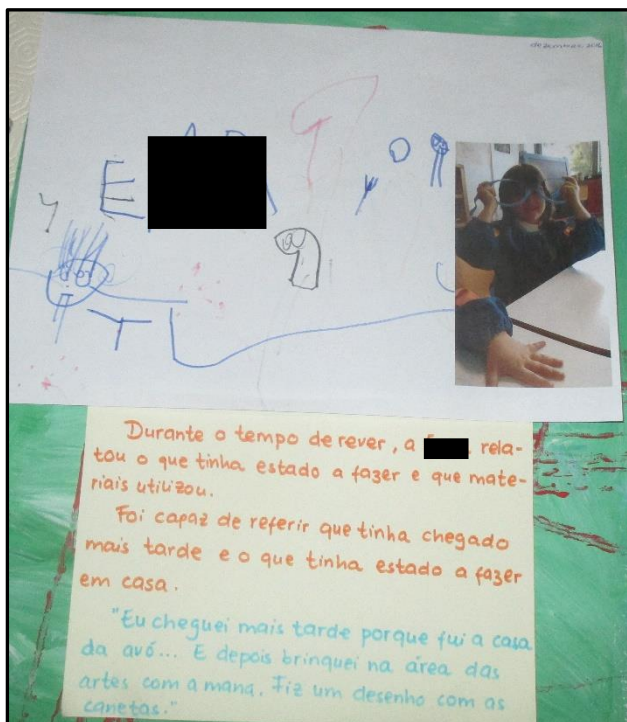 dezembro 2012
E
Durante o tempo de rever, a rela-
tou o que tinha estado a fazer e que mate-
riais utilizou.
Foi capaz de referir que tinha chegado
mais tarde e o que tinha estado a fazer
em casa.
"Eu cheguei mais tarde porque fui a casa
da avó... E depois brinquei na área das
artes com a mana. Fiz um desenho com as
canetas."